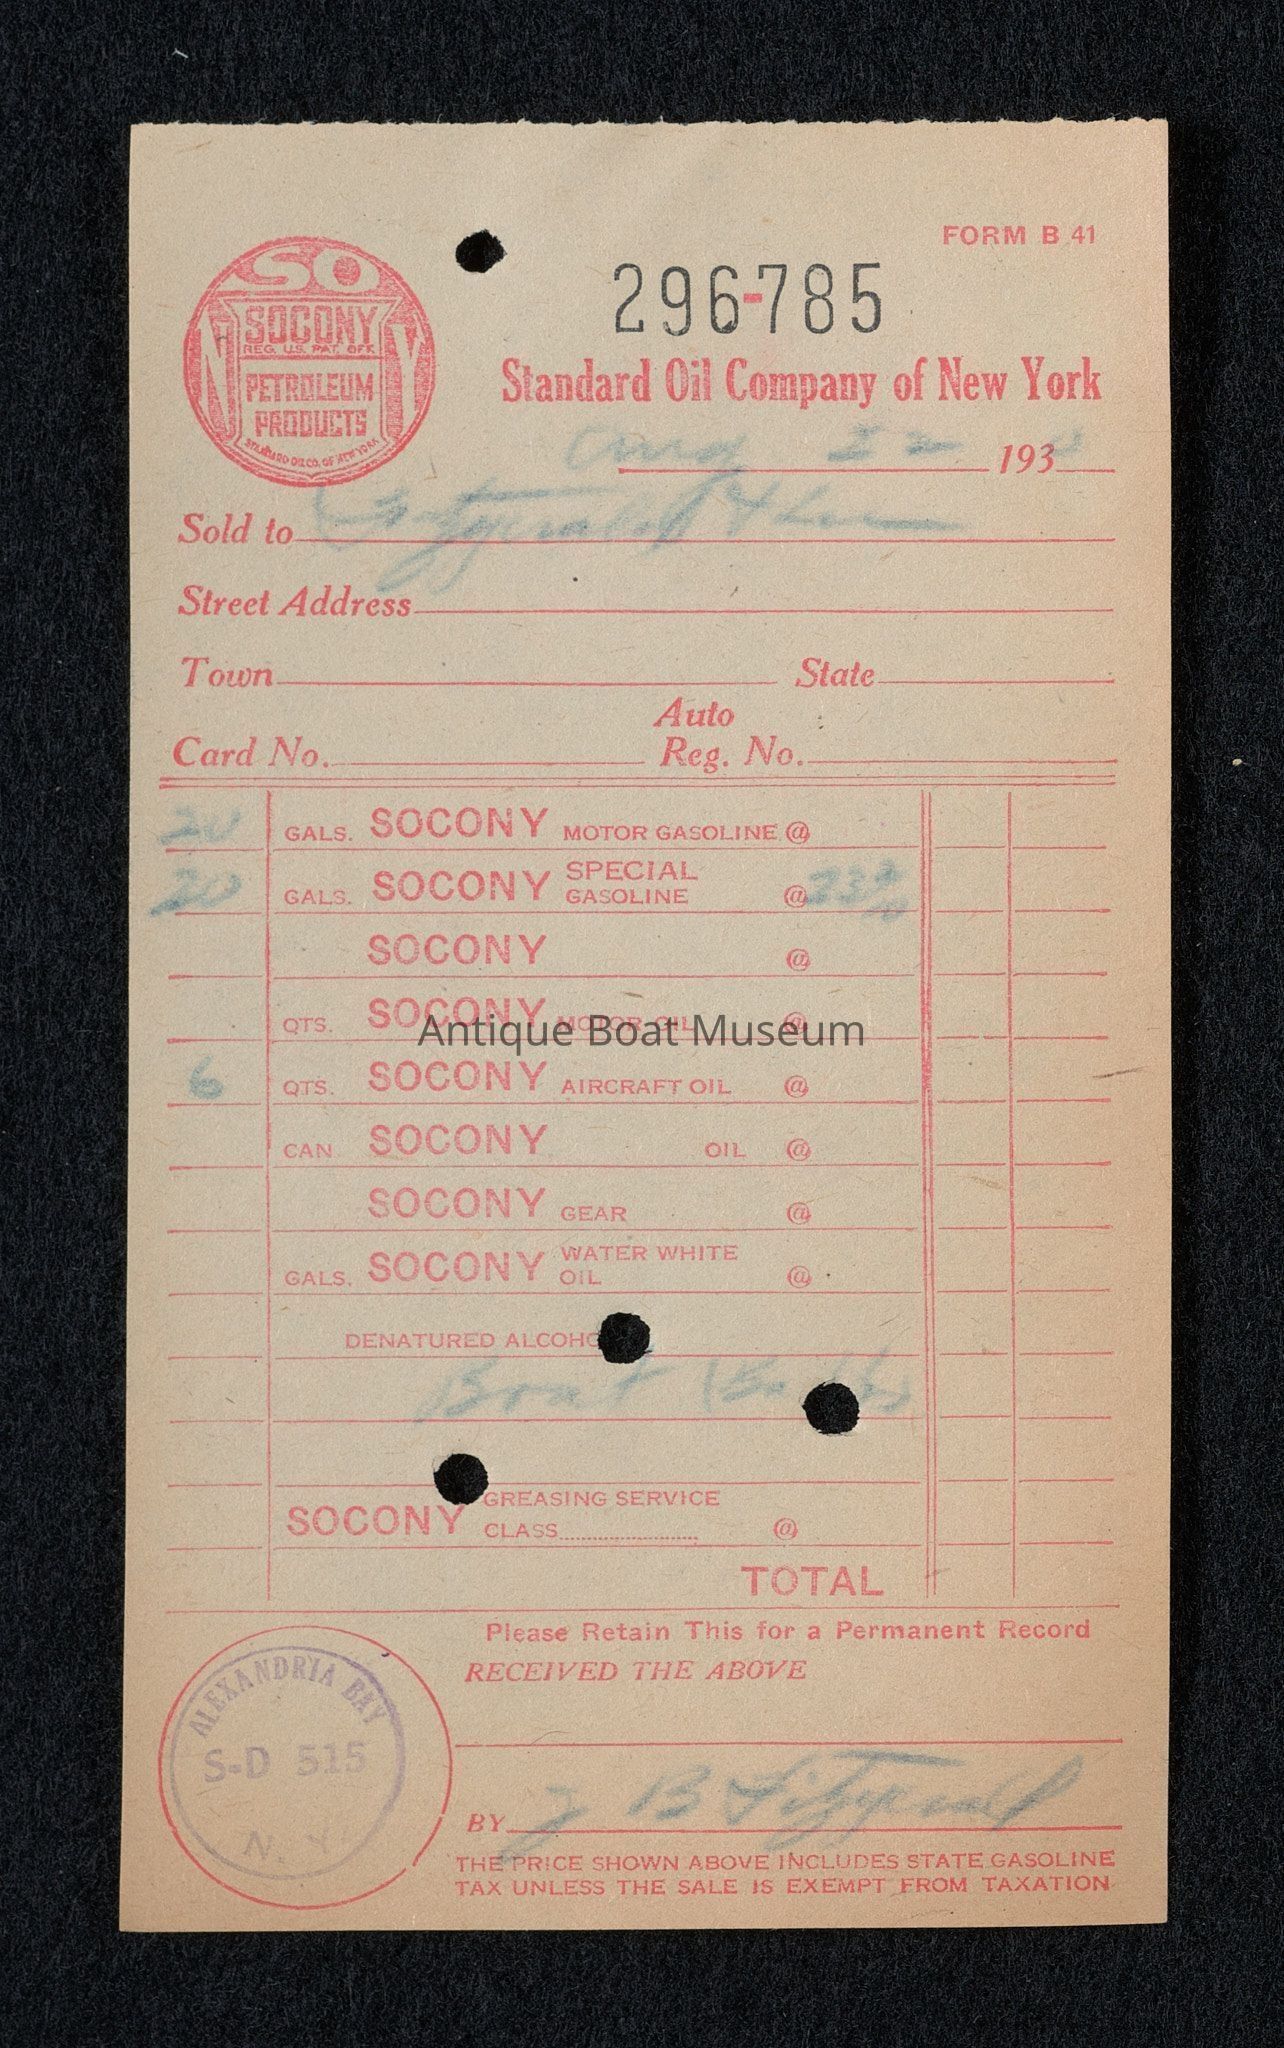 FORM B 41
SO
NY
SOCONY
REG. U.S. PAT. OFF.
PETROLEUM
PRODUCTS
STANDARD OIL CO. OF NEW YORK
296-785
Standard Oil Company of New York
Aug 22 1930
Sold to Fitzgerald & Lee
Street Address
Town State
Auto
Card No. Reg. No.
20 GALS. SOCONY MOTOR GASOLINE @
20 GALS. SOCONY SPECIAL GASOLINE @ 23
SOCONY @
QTS. SOCONY MOTOR OIL @
Antique Boat Museum
6 QTS. SOCONY AIRCRAFT OIL @
CAN SOCONY OIL @
SOCONY GEAR @
GALS. SOCONY WATER WHITE OIL @
DENATURED ALCOHO
Boat
SOCONY GREASING SERVICE
CLASS @
TOTAL
Please Retain This for a Permanent Record
RECEIVED THE ABOVE
ALEXANDRIA BAY
S-D 515
N. Y
BY J B Fitzgerald
THE PRICE SHOWN ABOVE INCLUDES STATE GASOLINE
TAX UNLESS THE SALE IS EXEMPT FROM TAXATION